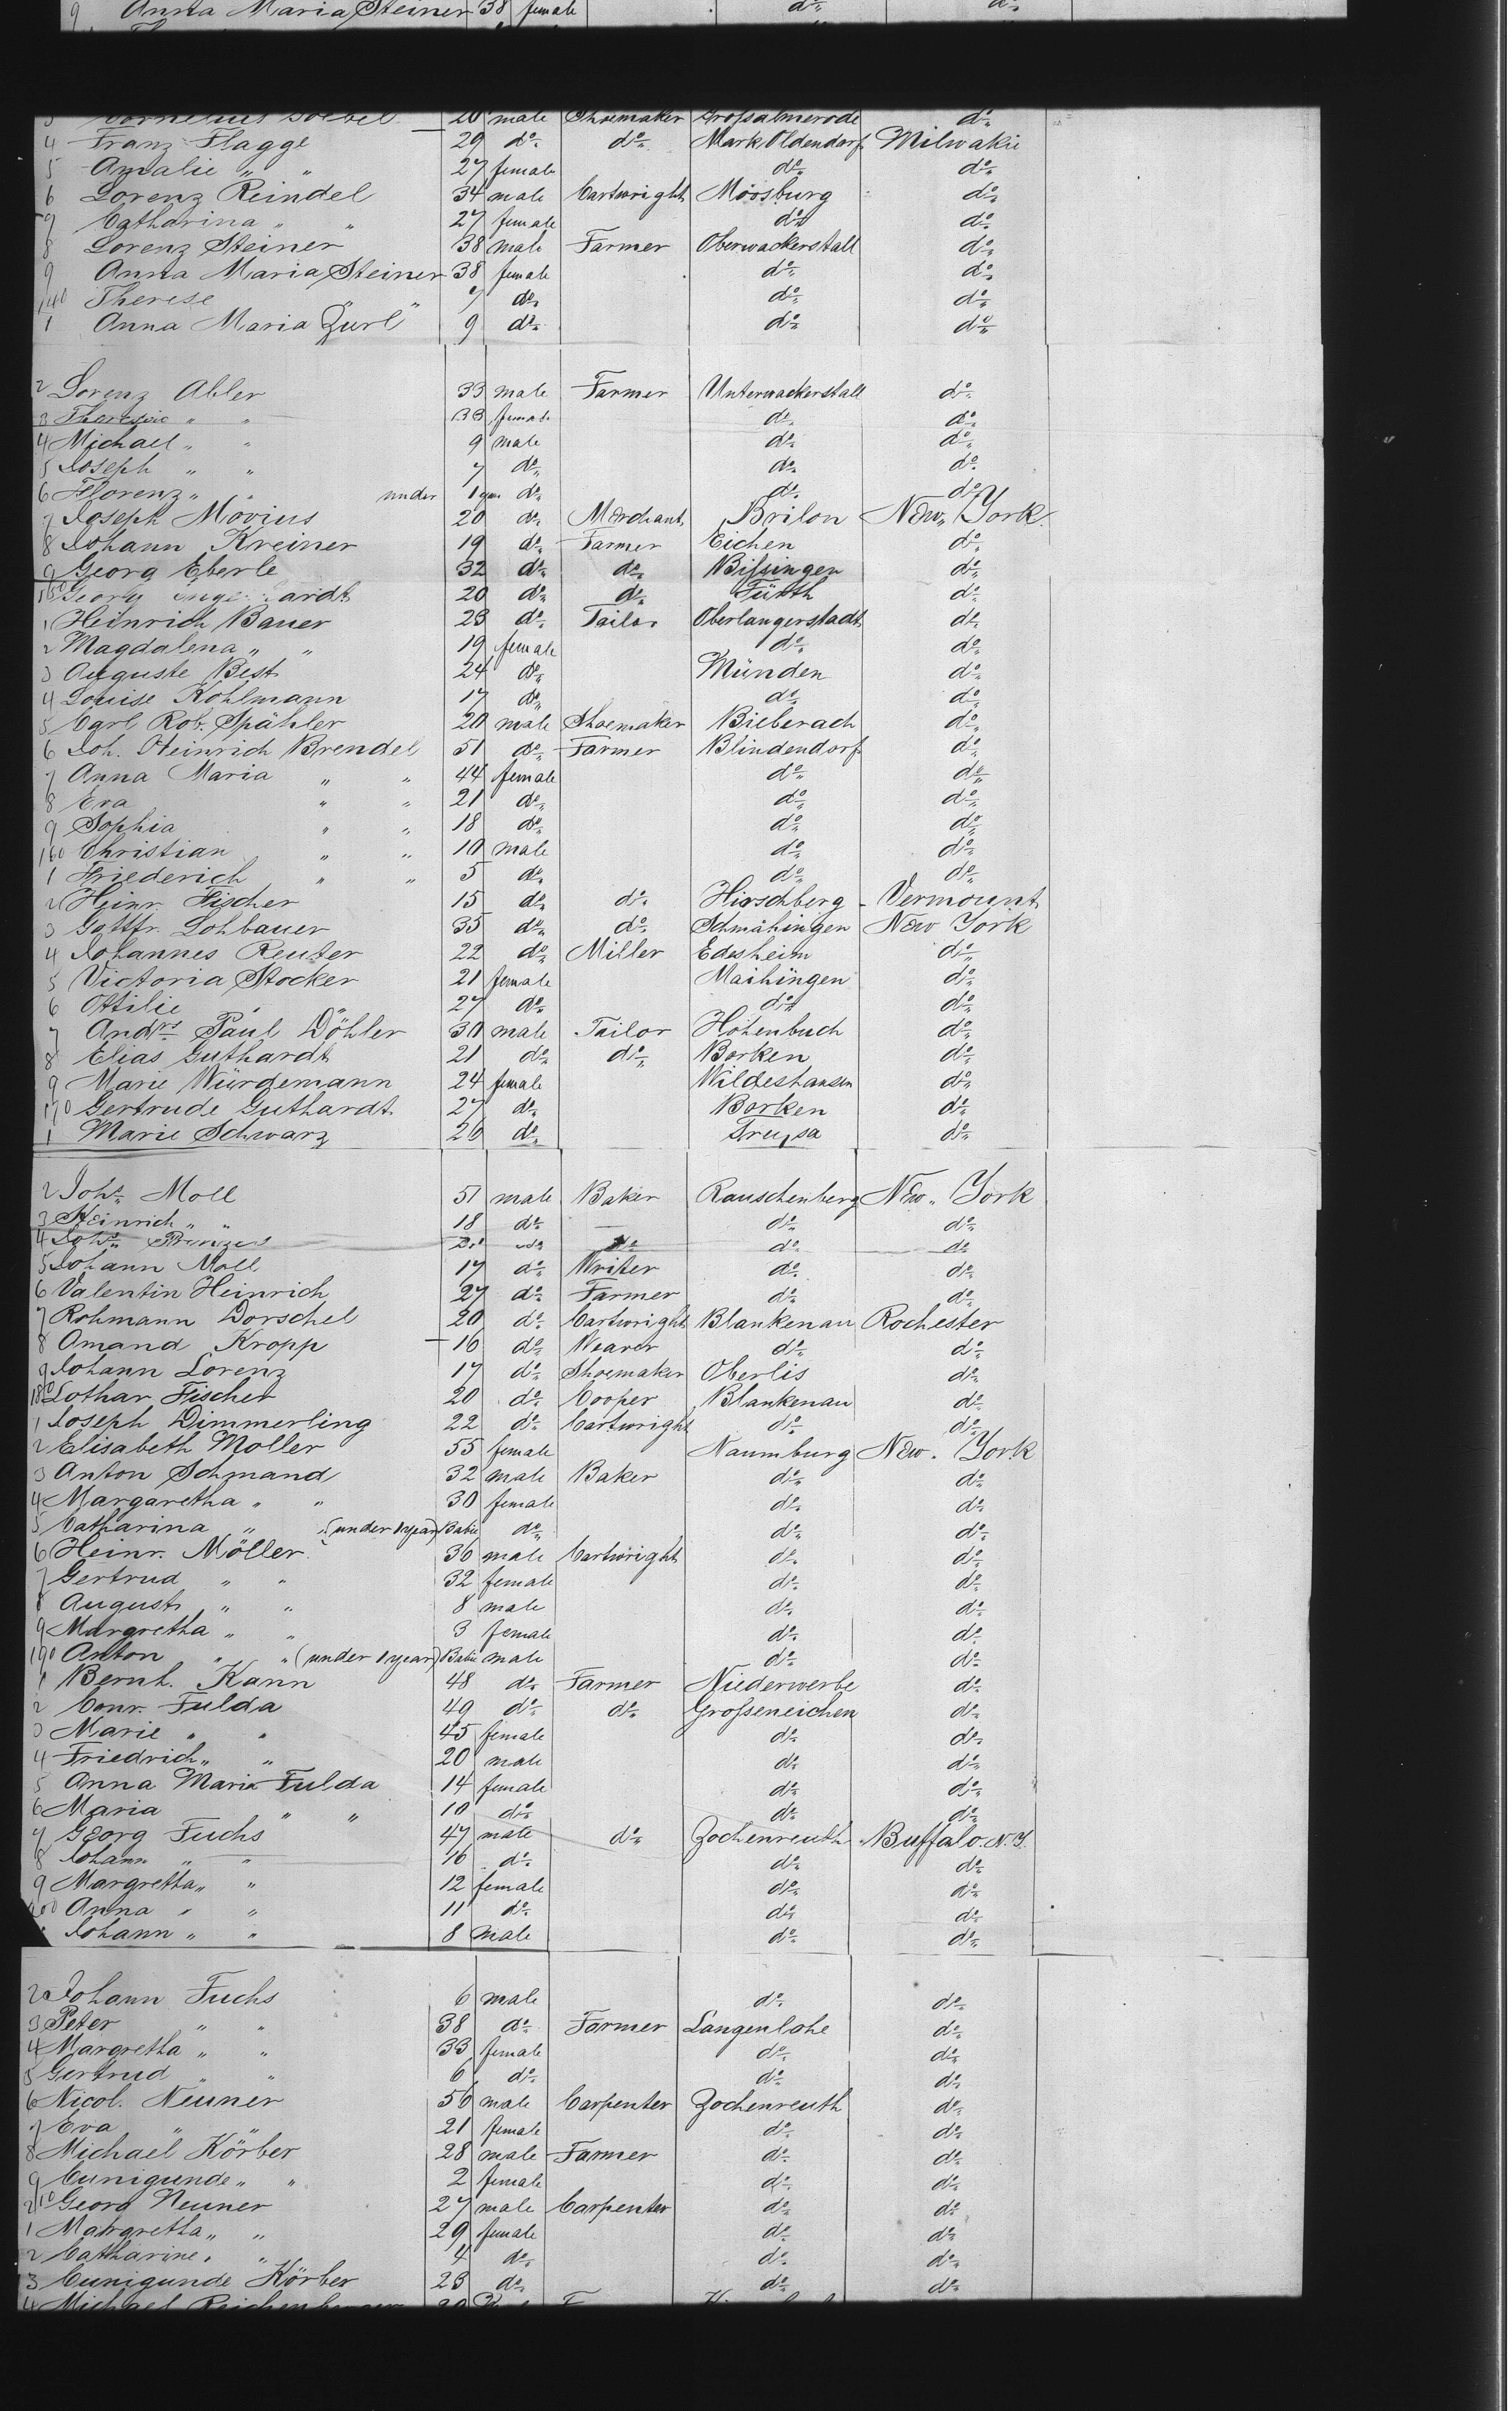 9 Anna Maria Steiner 38 female do do
3 Cornelius Goebel 20 male Shoemaker Großalmerode do
4 Franz Flagge 29 do do MarkOldendorf Milwakie
5 Amalie " " 27 female do do
6 Lorenz Reindel 34 male Cartwright Moosburg do
7 Catharina " " 27 female do do
8 Lorenz Steiner 38 male Farmer Oberwackerstall do
9 Anna Maria Steiner 38 female do do
140 Therese " " 7 do do do
1 Anna Maria Zurl 9 do do do
2 Lorenz Abler 33 male Farmer Unterwackerstall do
3 Theresia " " 33 female do do
4 Michael " " 9 male do do
5 Joseph " " 7 do do do
6 Florenz " " under 1 year do do do
7 Joseph Movius 20 do Merchant Brilon New York
8 Johann Kreiner 19 do Farmer Eichen do
9 Georg Eberle 32 do do Bißingen do
150 Georg 20 do do Fürth do
1 Heinrich Bauer 23 do Tailor Oberlangerstadt do
2 Magdalena " " 19 female do do
3 Auguste Best 24 do Münden do
4 Louise Kohlmann 17 do do do
5 Carl Rob. Spähler 20 male Shoemaker Bieberach do
6 Joh. Heinrich Brendel 51 do Farmer Blindendorf do
7 Anna Maria " " 44 female do do
8 Eva " " 21 do do do
9 Sophia " " 18 do do do
160 Christian " " 10 male do do
1 Friederich " " 5 do do do
2 Heinr. Fischer 15 do do Hirschberg Vermount
3 Gottfr. Lohbauer 35 do do Schmähingen New York
4 Johannes Reuter 22 do Miller Edesheim do
5 Victoria Stocker 21 female Maihingen do
6 Ottilie " " 27 do do do
7 Andrs Paul Döhler 30 male Tailor Hohenbuch do
8 Elias Guthardt 21 do do Borken do
9 Marie Würdemann 24 female Wildeshausen do
170 Gertrude Guthardt 27 do Borken do
1 Marie Schwarz 20 do Treysa do
2 Johs Moll 51 male Baker Rauschenberg New York
3 Heinrich " " 18 do — do do
4 Johs do do do do
5 Johann Moll 17 do Writer do do
6 Valentin Heinrich 27 do Farmer do do
7 Rohmann Dorschel 20 do Cartwright Blankenau Rochester
8 Omand Kropp 16 do Weaver do do
9 Johann Lorenz 17 do Shoemaker Oberlis do
180 Lothar Fischer 20 do Cooper Blankenau do
1 Joseph Dimmerling 22 do Cartwright do do
2 Elisabeth Moller 55 female Naumburg New York
3 Anton Schmand 32 male Baker do do
4 Margaretha " " 30 female do do
5 Catharina " " (under 1 year) Babie do do do
6 Heinr. Möller 36 male Cartwright do do
7 Gertrud " " 32 female do do
8 August " " 8 male do do
9 Margretha " " 3 female do do
190 Anton " " (under 1 year) Babie male do do
1 Bernh. Kann 48 do Farmer Niederwerbe do
2 Conr. Fulda 49 do do Großeneichen do
3 Marie " " 45 female do do
4 Friedrich " " 20 male do do
5 Anna Maria Fulda 14 female do do
6 Maria " " 10 do do do
7 Georg Fuchs 47 male do Zochenreuth Buffalo. N.Y.
8 Johann " " 16 do do do
9 Margretha " " 12 female do do
200 Anna " " 11 do do do
Johann " " 8 male do do
2 Johann Fuchs 6 male do do
3 Peter " " 38 do Farmer Langenlohe do
4 Margretha " " 33 female do do
5 Gertrud " " 6 do do do
6 Nicol. Neuner 56 male Carpenter Zochenreuth do
7 Eva " " 21 female do do
8 Michael Körber 28 male Farmer do do
9 Cunigunde " " 2 female do do
210 Georg Neuner 27 male Carpenter do do
1 Margretha " " 29 female do do
2 Catharine " " 4 do do do
3 Cunigunde Körber 23 do do do
4 Michael